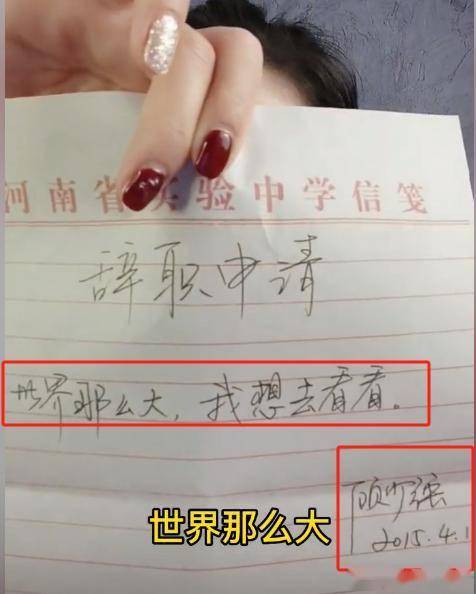 河南省实验中学信笺
辞职申请
世界那么大，我想去看看。
顾少强
2015.4.1
世界那么大